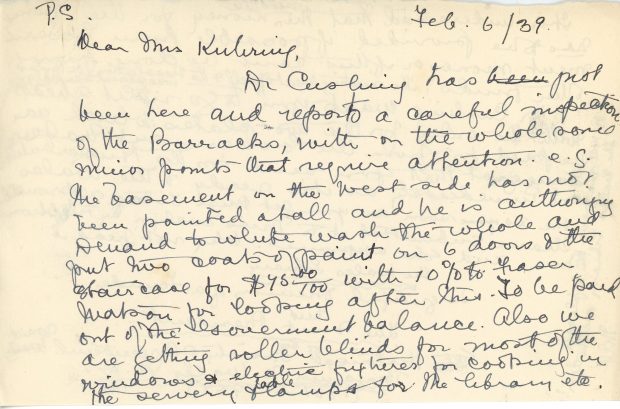 P.S.
Feb. 6/39.
Dear Mrs Kuhring,
Dr Cushing has been just
been here and reports a careful inspection
of the Barracks, with on the whole some
minor points that require attention. e.g.
The basement on the west side has not
been painted at all and he is authorizing
Demand to white wash the whole and
put two coats of paint on 6 doors & the
staircase for $75 00/100 with 10% to Fraser
Watson for looking after this. To be paid
out of the Government balance. Also we
are getting roller blinds for most of the
windows & electric fixtures for cooking in
the servery & table lamps for the library etc.